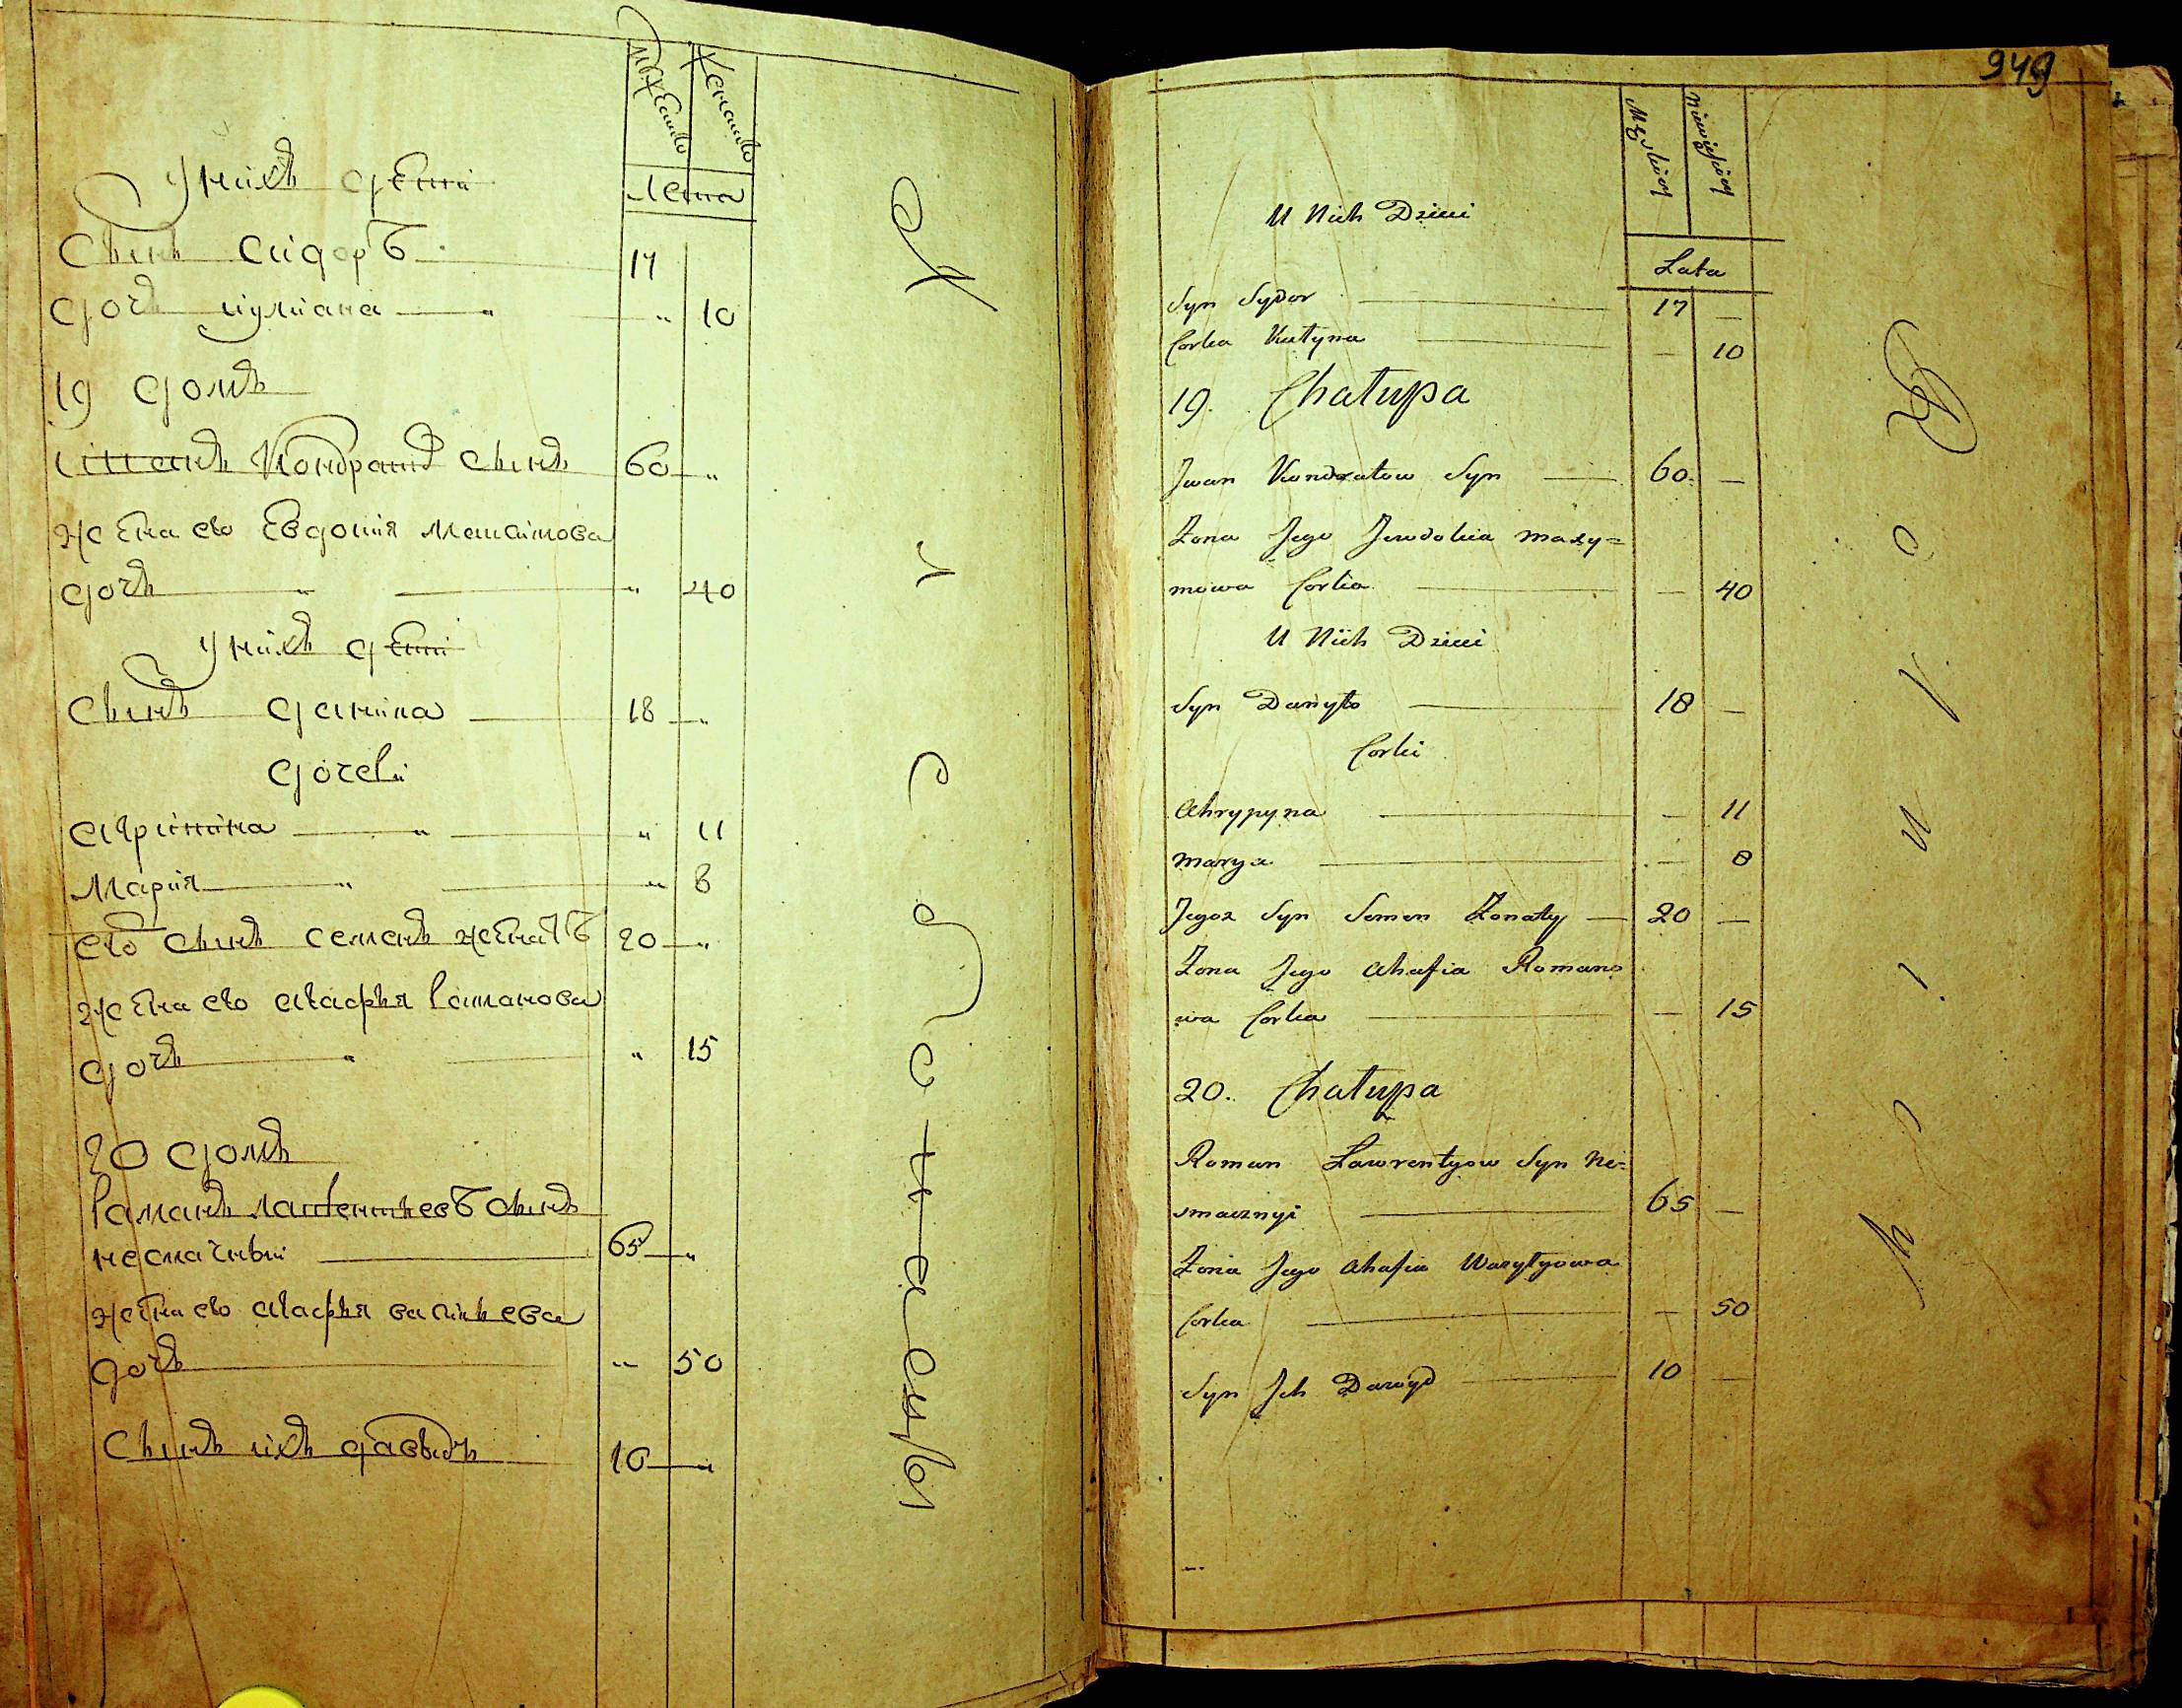 Мужеско Женско
Лета
У нихъ дети
Сынъ Сидоръ 17
дочь иулиана " 10
19 домъ
Иванъ Кондратовъ сынъ 60 "
жена его Евдокия Максимова
дочь " 40
У нихъ дети
Сынъ данила 18 "
дочери
агрипина " 11
Мария " 8
его сынъ семенъ женатъ 20 "
жена его агафья Романова
дочь " 15
20 домъ
Романъ лаврентьевъ сынъ
несмачный 65 "
жена его агафья васильева
дочь " 50
Сынъ ихъ давыдъ 10 "
949
Męskiey Niewieściey
Lata
U Nich Dzieci
Syn Sydor 17 —
Corka 10
19. Chałupa
Jwan Kondratow Syn 60. —
Żona Jego Jewdokia Maxy=
mowa Corka — 40
U Nich Dzieci
Syn Danyło 18 —
Corki
Ahrypyna — 11
Marya — 8
Jegoż Syn Semen Żonaty 20 —
Żona Jego Ahafia Romano
wa Corka — 15
20. Chałupa
Roman Ławrentyow Syn Ne=
smacznyi 65 —
Żona Jego Ahafia Wasylyowa
Corka — 50
Syn Jch Dawyd 10 —